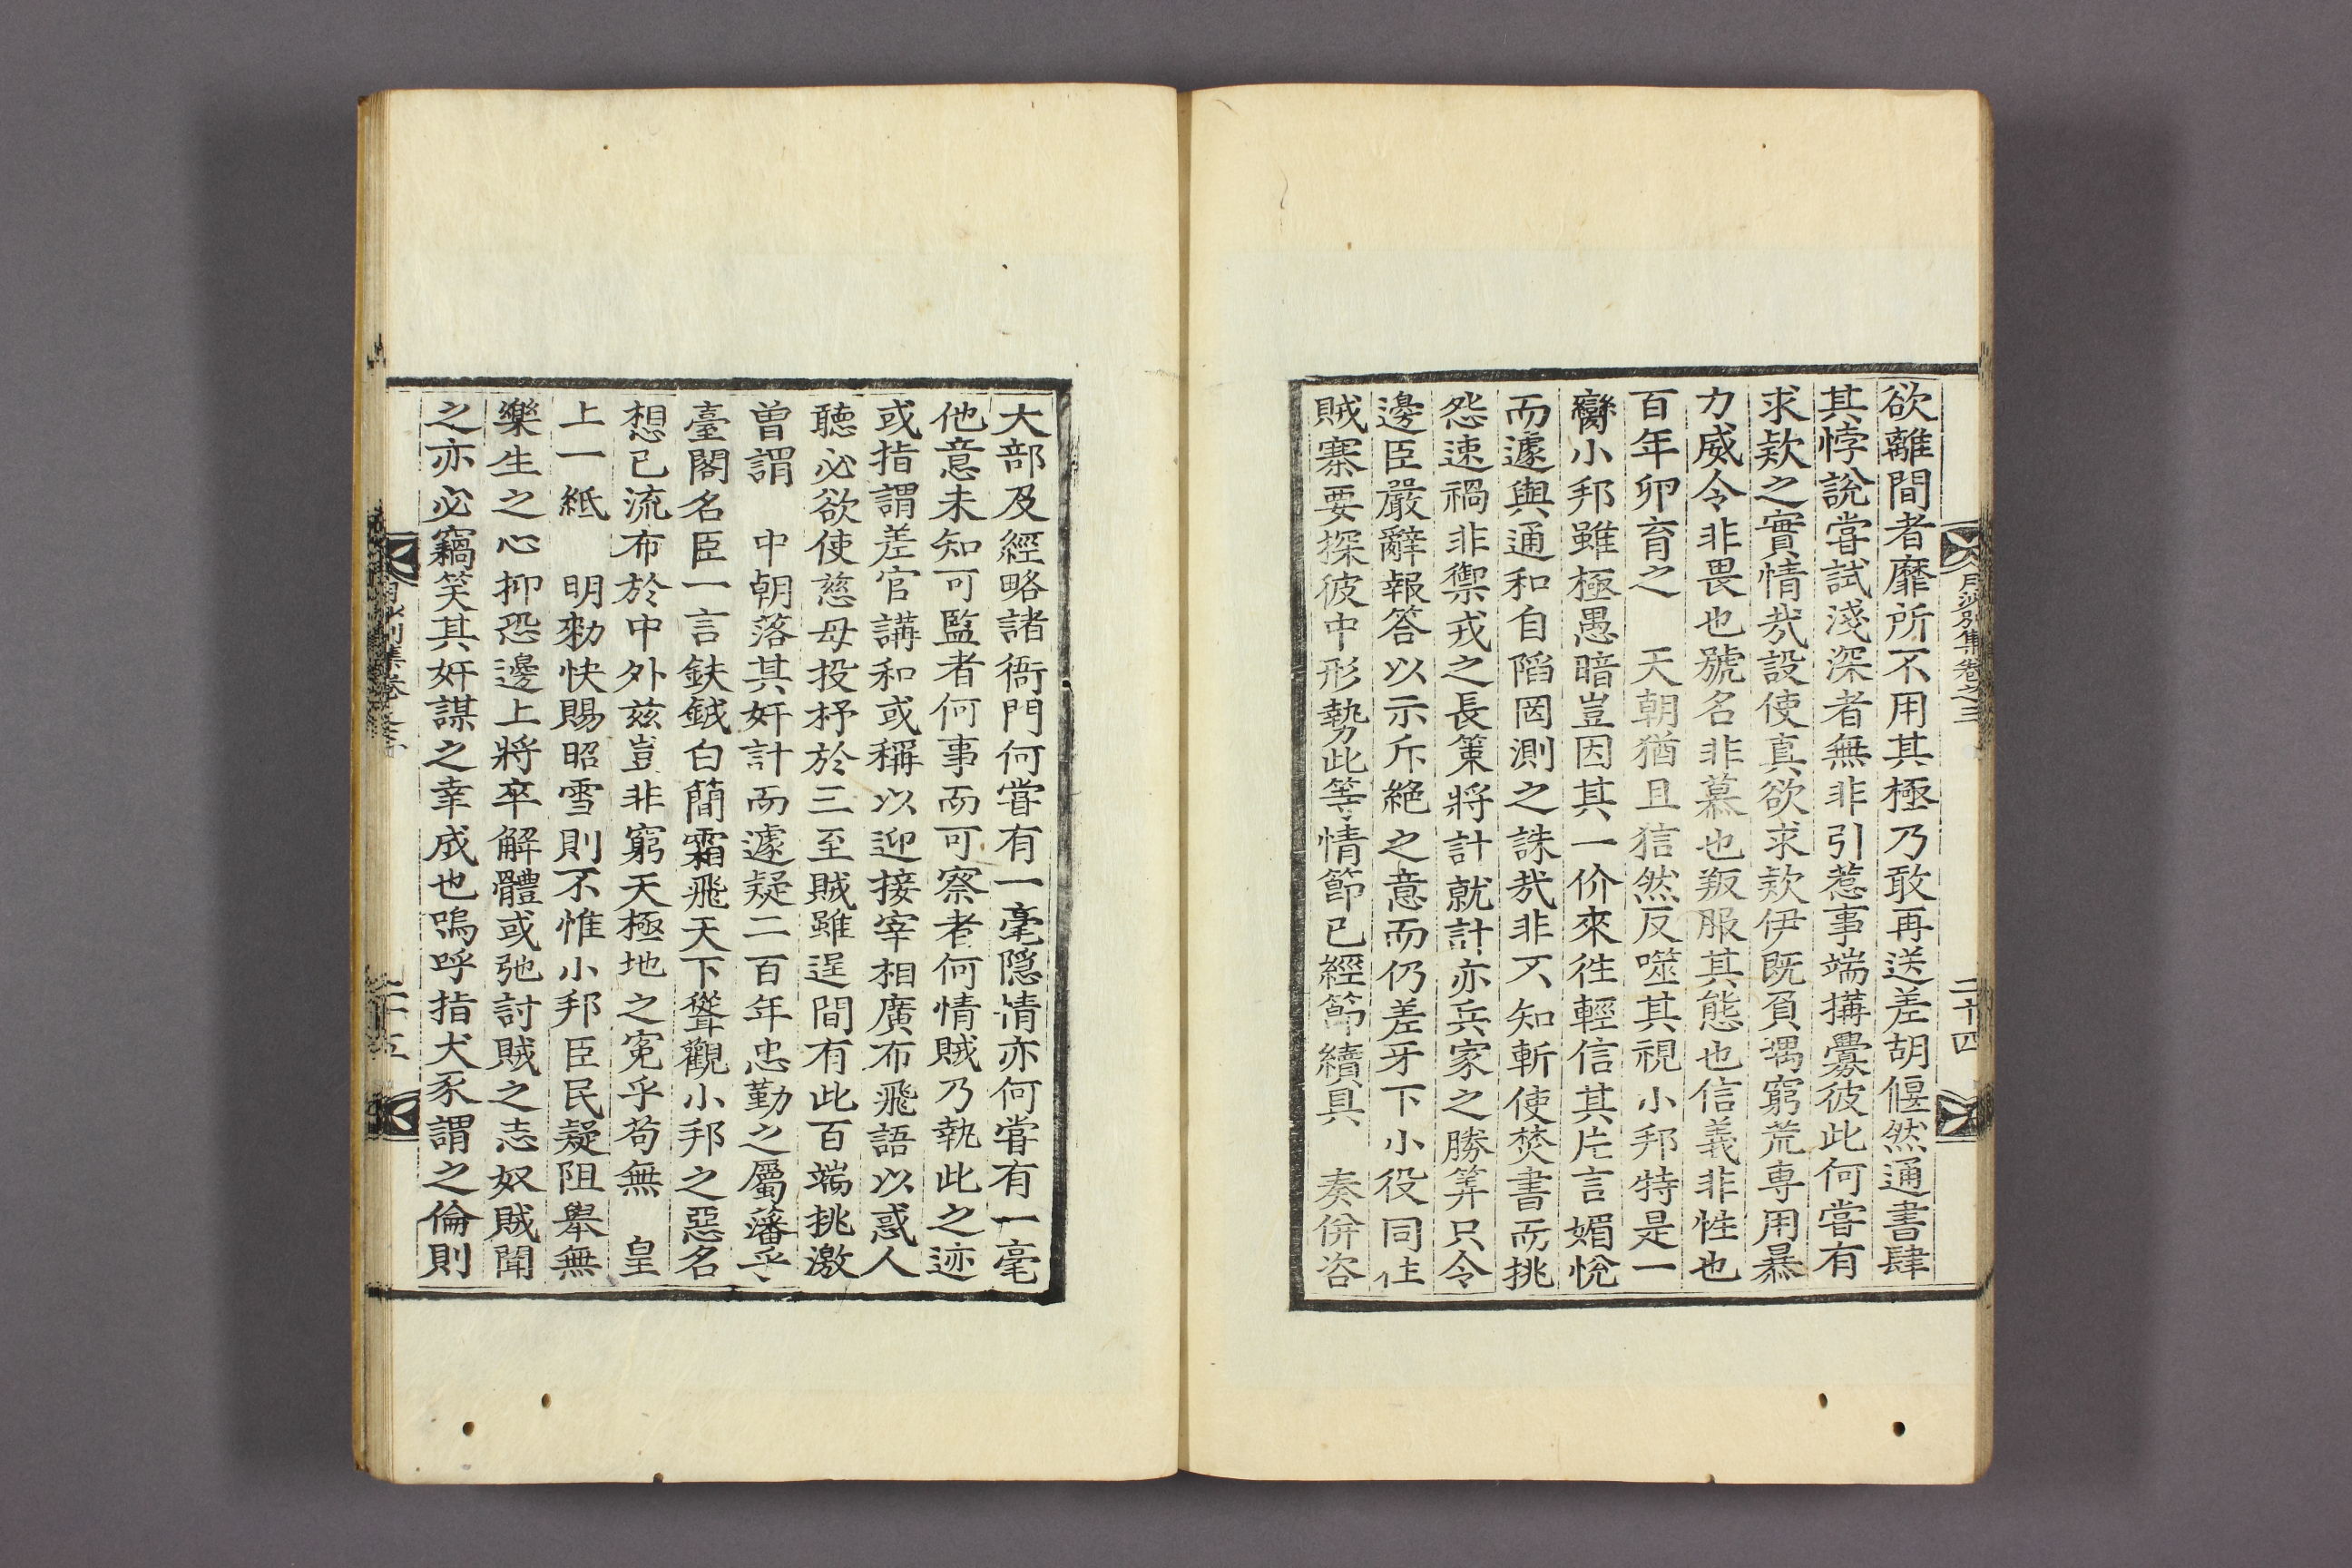 月沙別集卷之三
二十四
欲離間者靡所不用其極乃敢再送差胡偃然通書肆
其悖說嘗試淺深者無非引惹事端搆釁彼此何嘗有
求欵之實情㢤設使真欲求欵伊旣負堣窮荒専用暴
力威令非畏也號名非慕也叛服其態也信義非性也
百年卵育之　天朝猶且狺然反噬其視小邦特是一
臠小邦雖極愚暗豈因其一价來徃輕信其片言媚悅
而遽與通和自䧟罔測之誅㢤非不知斬使焚書而挑
怨速禍非禦戎之長策將計就計亦兵家之勝筭只令
邊臣嚴辭報答以示斥絶之意而仍差牙下小役同徃
賊寨要探彼中形勢此等情節已經節續具　奏併咨
大部及經略諸衙門何嘗有一毫隠情亦何嘗有一毫
他意未知可監者何事而可察者何情賊乃執此之迹
或指謂差官講和或稱以迎接宰相廣布飛語以惑人
聽必欲使慈母投杼於三至賊雖逞間有此百端挑激
曾謂　中朝落其奸計而遽疑二百年忠勤之屬藩乎
臺閣名臣一言鈇鉞白簡霜飛天下聳觀小邦之惡名
想已流布於中外玆豈非窮天極地之寃乎苟無　皇
上一紙　明勑快賜昭雪則不惟小邦臣民疑阻舉無
樂生之心抑恐邊上將卒解體或弛討賊之志奴賊聞
之亦必竊笑其奸謀之幸成也嗚呼指犬豕謂之倫則
月沙別集卷之三
二十五